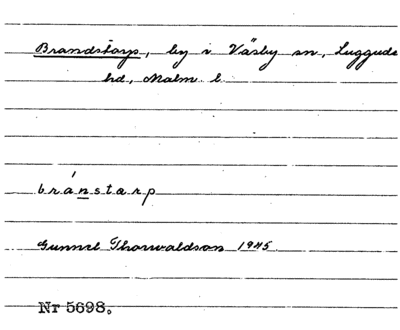 Brandstorp, by i Väsby sn, Luggude
hd, Malm. l.
bránstarp
Gunnel Thorwaldson 1945
Nr 5698.